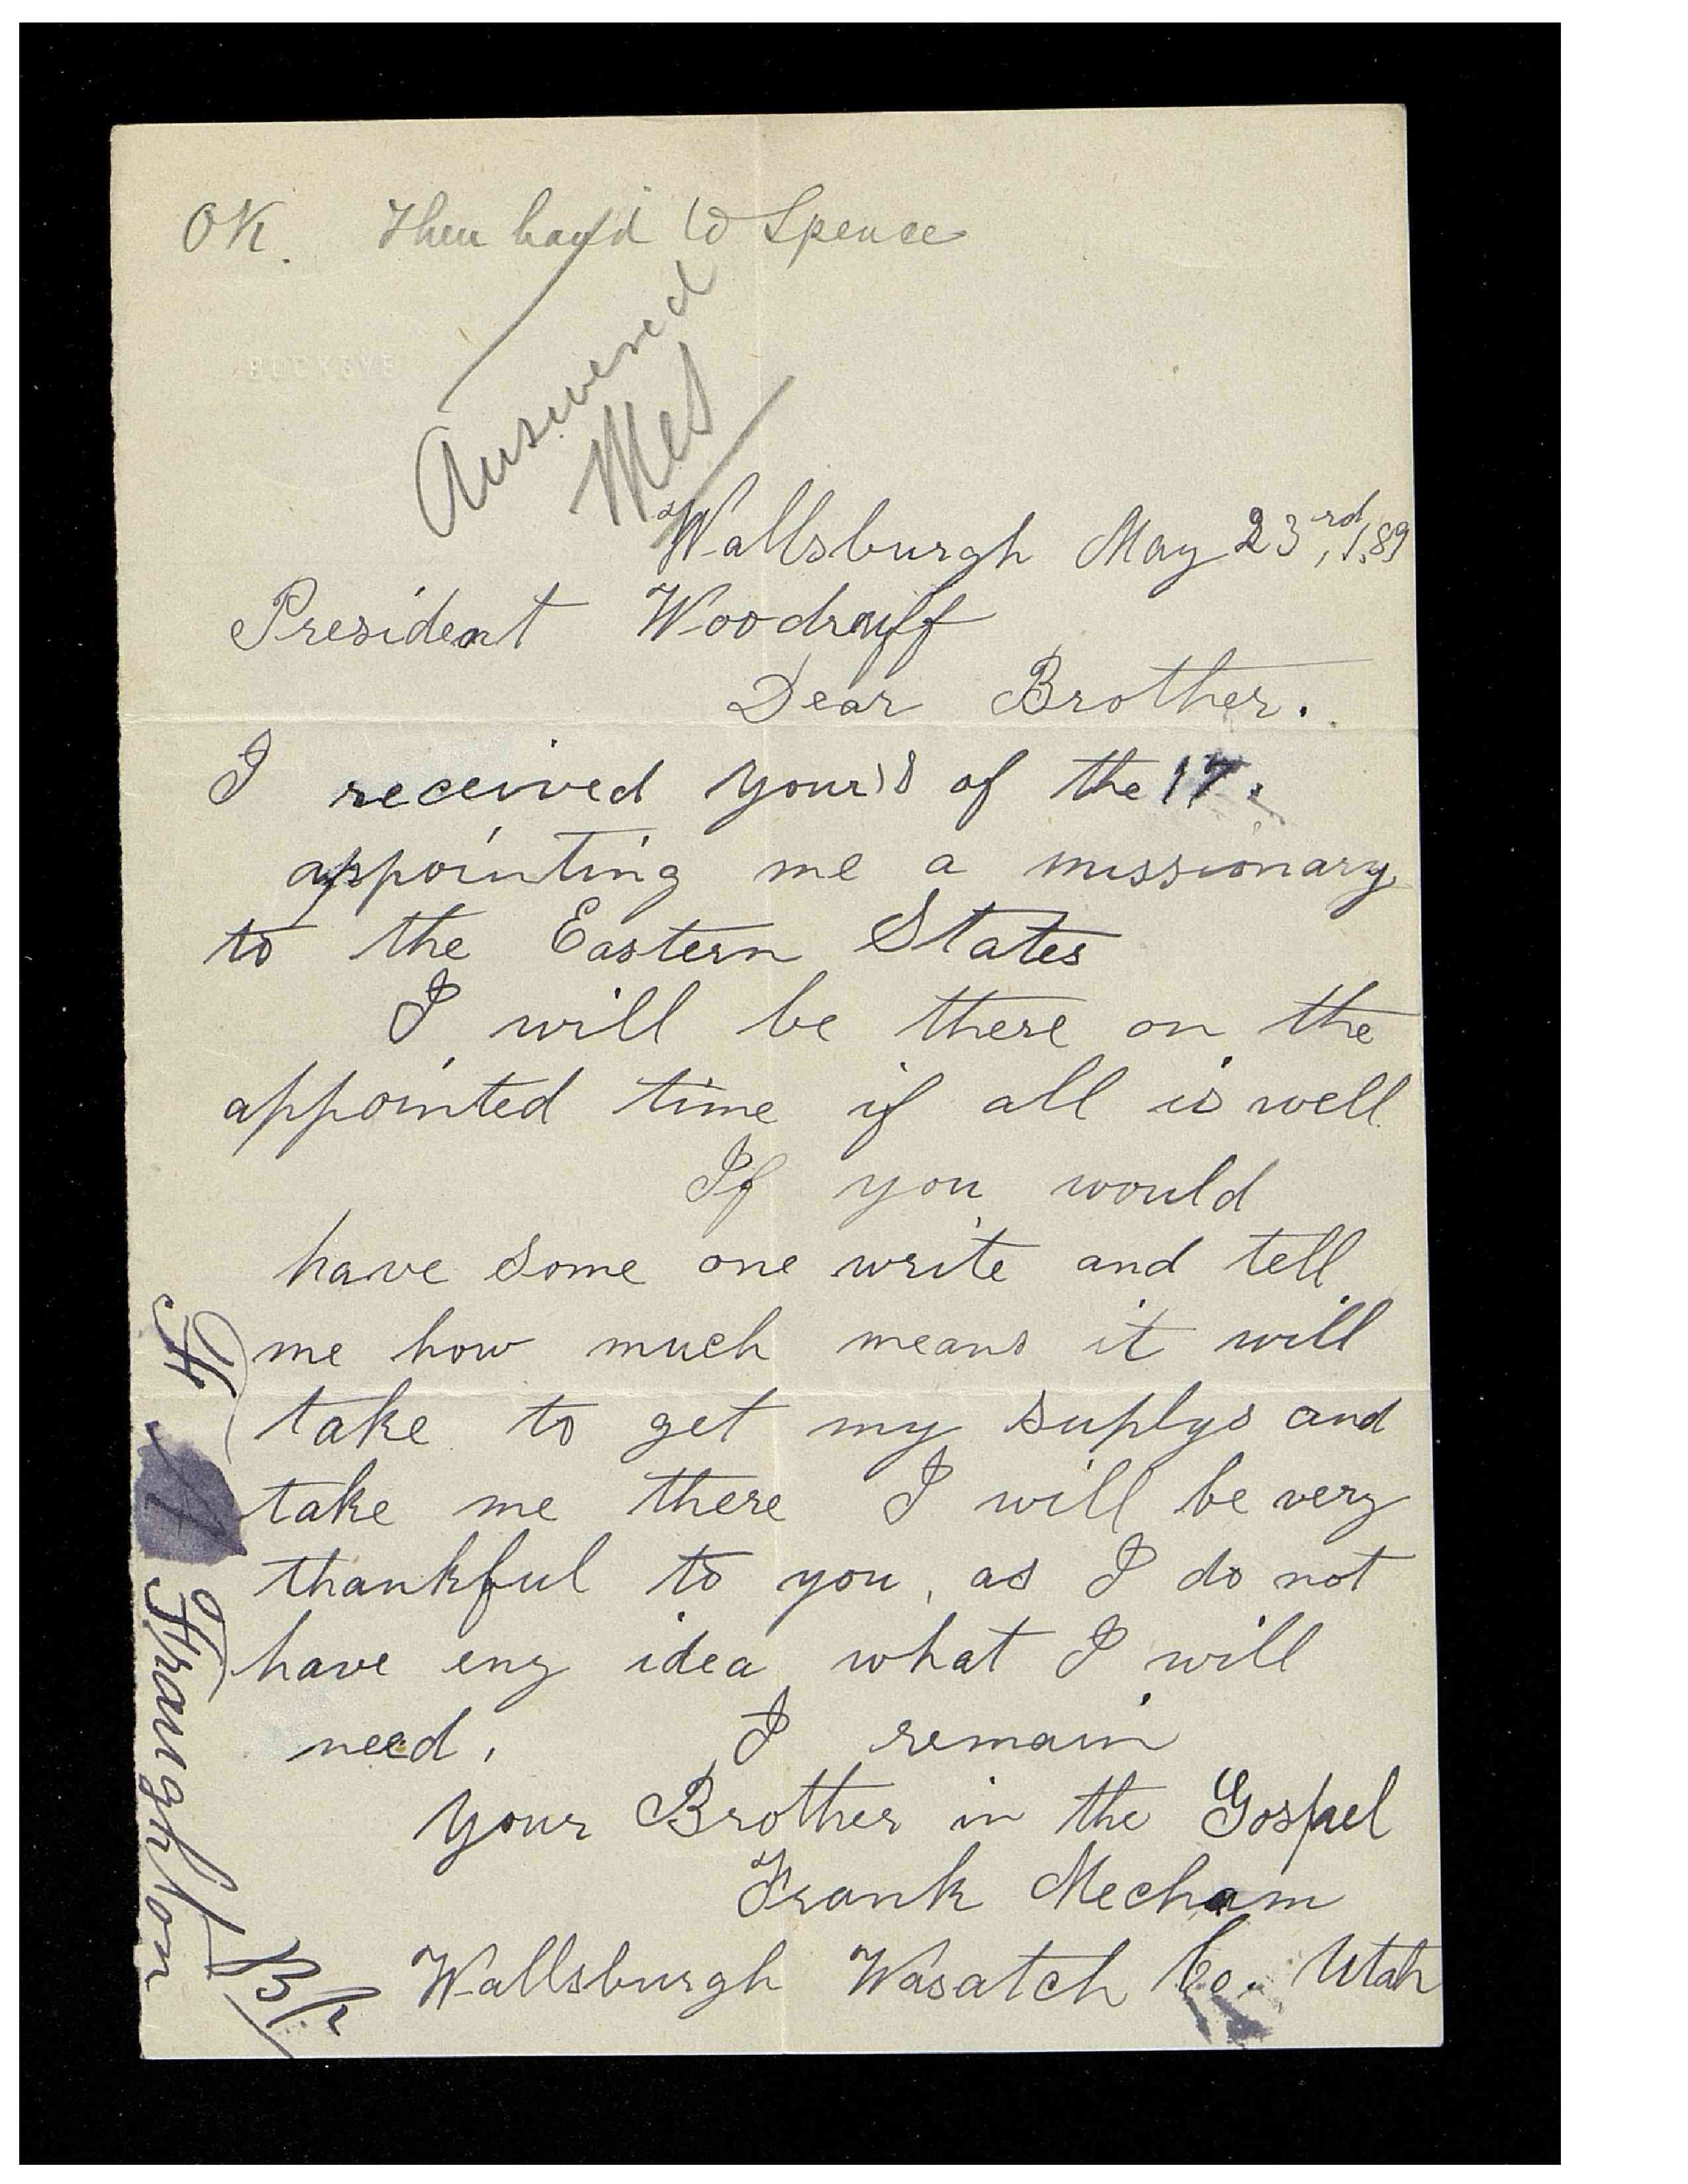 OK. Then hand to Spence
BUCKEYE
Answered
Wallsburgh May 23rd, 1,89
President Woodruff
Dear Brother.
I received your's of the 17.
appointing me a missionary
to the Eastern States
I will be there on the
appointed time if all is well.
If you would
have some one write and tell
me how much means it will
take to get my suplys and
take me there I will be very
thankful to you, as I do not
have eny idea what I will
need. I remain
your Brother in the Gospel
Frank Mecham
Wallsburgh Wasatch Co. Utah
Bp